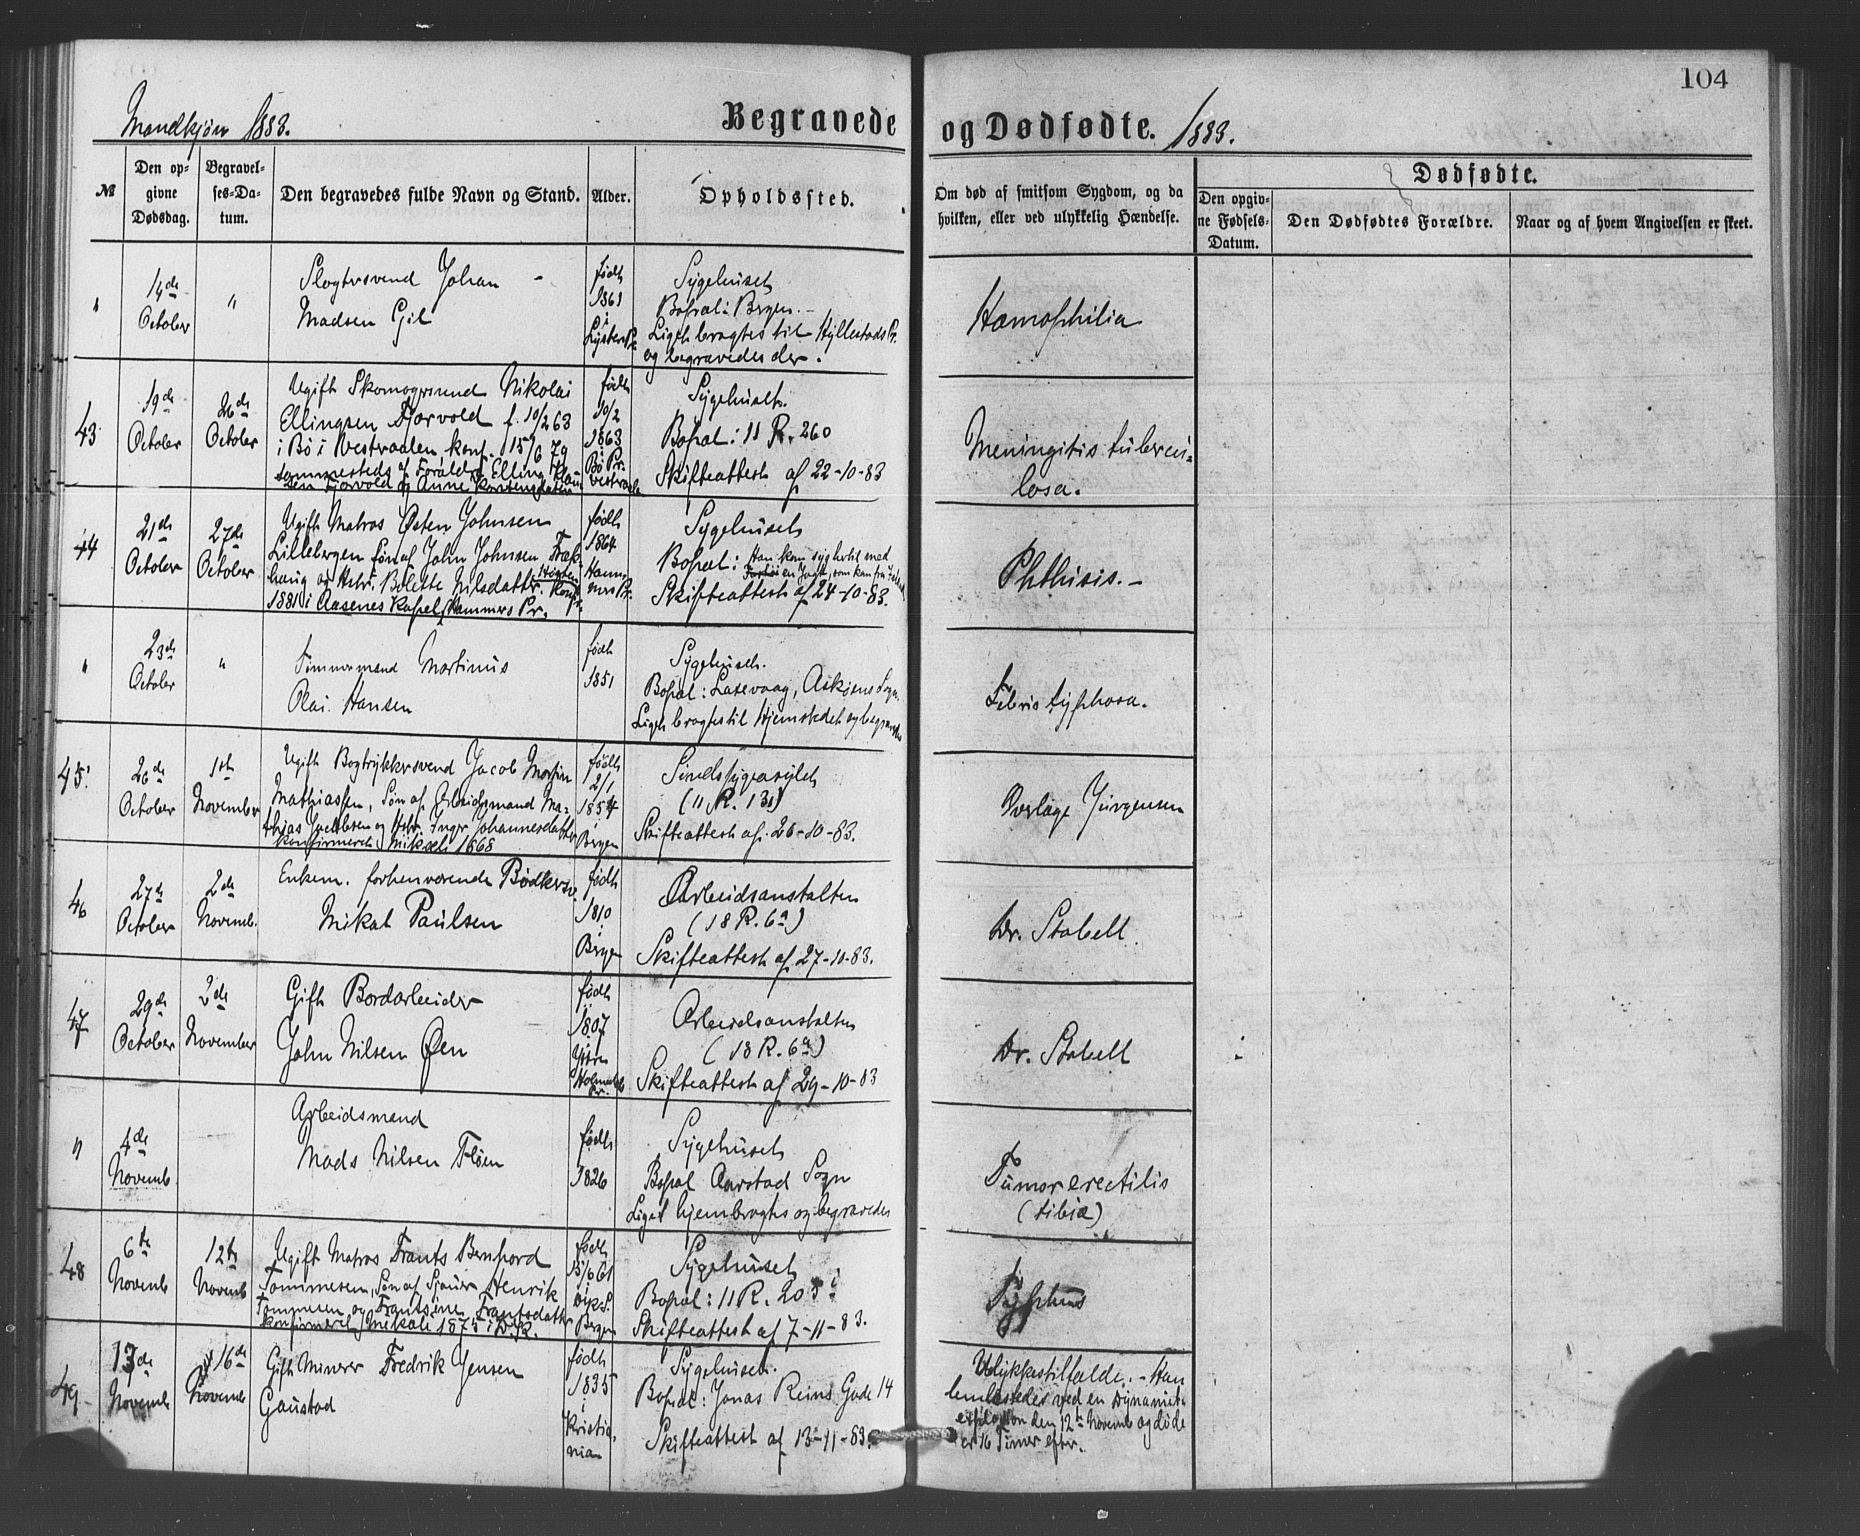 104
Mandkjøn 1883.
Begravede og Dødfødte. 1883.
№
Den op-
givne
Dødsdag.
Begravel-
ses-Da-
tum.
Den begravedes fulde Navn og Stand.
Alder.
Opholdssted.
Om død af smitsom Sygdom, og da
hvilken, eller ved ulykkelig Hændelse.
Dødfødte.
Den opgiv-
ne Fødsels-
Datum.
Den Dødfødtes Forældre.
Naar og af hvem Angivelsen er skeet.
"
14de
October
"
Slagtersvend Johan -
Madsen Gil
født
1861
i
Lyster Pr.
Sygehuset
Bopæl: Bergen.
Liget bragtes til Hyllestads Pr.
og begravedes der.
Hæmophilia
43
19de
October
26de
October
Ugift Skomagersvend Nikolai
Ellingsen Fjærvold f. 10/2 63
i Bø i Vestraalen konf. 15/6 79
sammesteds af Forældre Elling
Fjorvold og Anne
født
10/2
1863
Bø Pr.
Vestraalen
Sygehuset.
Bopæl: 11 R. 260
Skifteattest af 22-10-83
Meningitis tubercu-
losa.
44
21de
October
27de
October
Ugift Matros Østen Johnsen
Lillebergen Søn af John Johnsen
og Hstr. Bolette Nilsdatter konf.
1881 i Aasenes Kapel, Hammers Pr.
født
1864
Ham-
mers Pr.
Sygehuset
Bopæl: Han kom syg hertil med
en Jagt, som kom fra
Skifteattest af 24-10-83.
Phthisis.-
"
23de
October
"
Tømmermand Martinus
Olai Hansen
født
1851
Sygehuset.
Bopæl: Laxevaag, Askøens Sogn.
Liget bragtes til Hjemstedet og begravedes
Febris typhosa.
45.
26de
October
1ste
November
Ugift Bogtrykkersvend Jacob Martin
Mathiassen, Søn af Arbeidsmand Ma-
thias Jacobsen og Hstr. Inger Johannesdatter
konfirmeret Mikæli 1868
født
2/1
1854
i
Bergen
Sindssygeasylet
(11 R. 131)
Skifteattest af 26-10-83.
Overlæge Jürgensen
46
27de
October
2de
Novemb.
Enkem. forhenværende Bødkersv.
Mikal Paulsen
født
1810
i
Bergen
Arbeidsanstalten
(18 R. 6a)
Skifteattest af 27-10-83.
Dr. Stabell.
47
29de
October
2de
November
Gift Bordarbeider
John Nilsen Øen
født
1807
Yttre
Holmedals
Pr.
Arbeidsanstalten
(18 R. 6a)
Skifteattest af 29-10-83
Dr. Stabell
"
4de
Novemb.
Arbeidsmand
Mads Nilsen Fløen
født
1826
Sygehuset
Bopæl Aarstad Sogn
Liget hjembragtes og begravedes
Tumor erectilis
(tibiæ)
48
6te
Novemb
12te
Novemb
Ugift Matros Frants Bernhard
Tommesen, Søn af Sjouer Henrik
Tommesen og Frantsine Frantsdatter
konfirmeret Mikæli 1875 i D.K.
født
15/6 61
Bergen
Sygehuset
Bopæl: 11 R. 205
Skifteattest af 7-11-83.
Typhus
49
13de
Novemb
16de
Novemb
Gift Minerer Fredrik Jensen
Gaustad
født
1835
i
Kristia-
nia
Sygehuset.
Bopæl: Jonas Reins Gade 14
Skifteattest af 13-11-83.
Ulykkestilfælde. - Han
lemlæstedes ved en Dynamit-
explosion den 12te Novemb og døde
16 Timer efter.